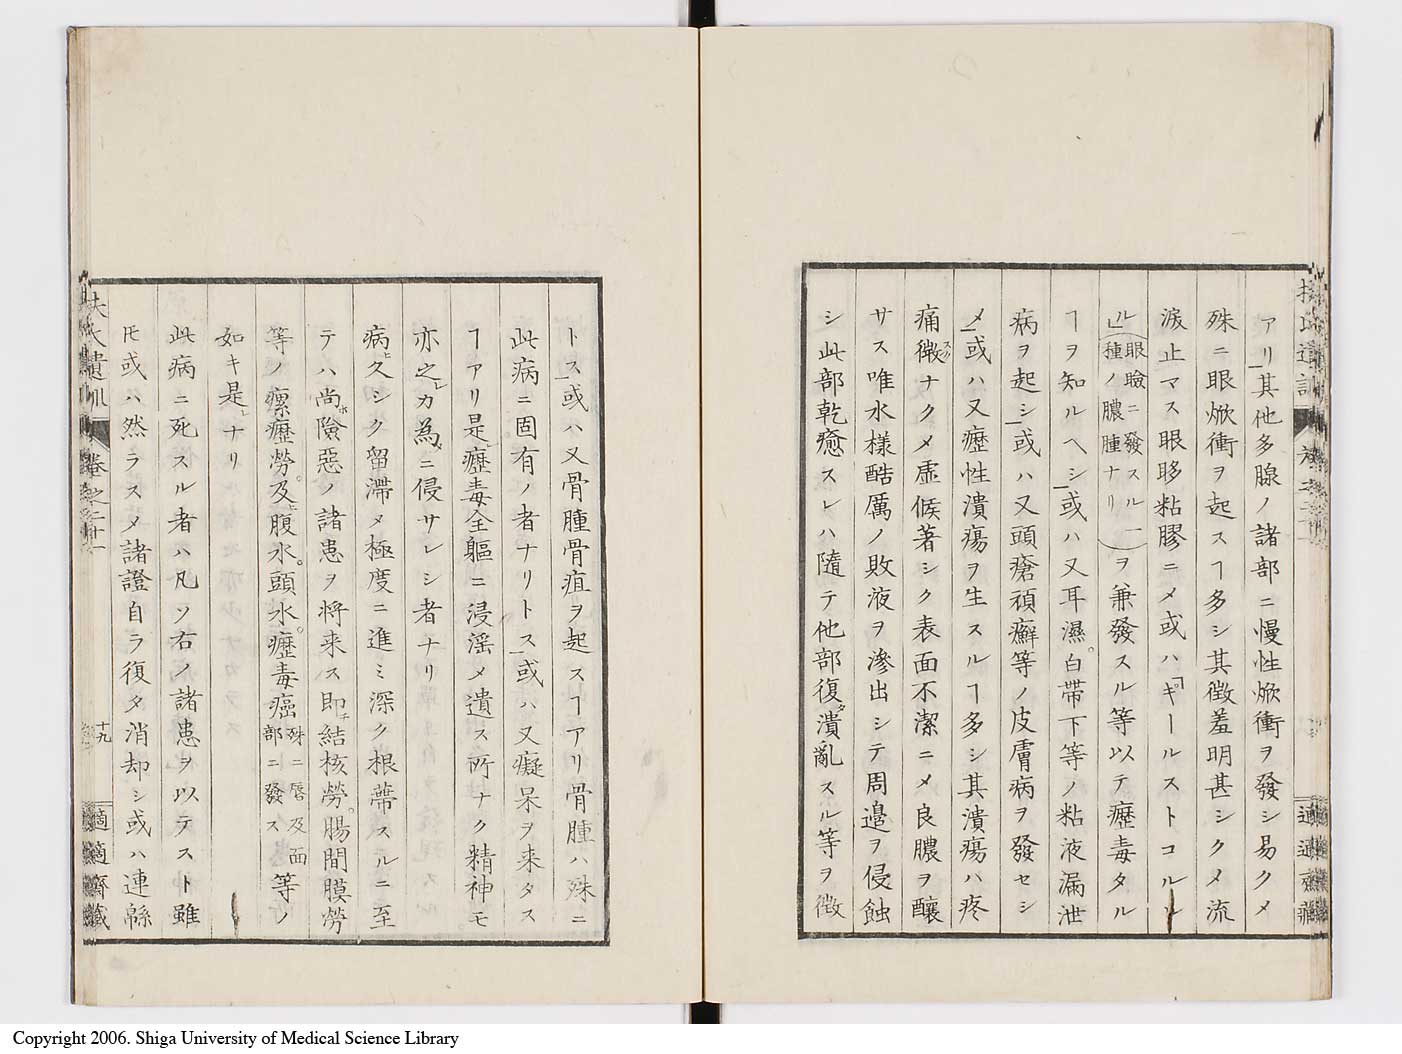 アリ其他多腺ノ諸部ニ慢性焮衝ヲ發シ易クメ
殊ニ眼焮衝ヲ起スヿ多シ其徴羞明甚シクメ流
涙止マス眼眵粘膠ニメ或ハ「ギールストコルル
ル」(眼瞼ニ發スル一種ノ膿腫ナリ)ヲ兼發スル等以テ瘰毒タル
ヿヲ知ルヘシ或ハ又耳濕白帯下等ノ粘液漏泄
病ヲ起シ或ハ又頭瘡頑癬等ノ皮膚病ヲ發セシ
メ或ハ又瘰性潰瘍ヲ生スルヿ多シ其潰瘍ハ疼
痛微ナクメ虚候著シク表面不潔ニメ良膿ヲ釀
サス唯水様酷厲ノ敗液ヲ滲出シテ周邉ヲ侵蝕
シ此部乾癒スレハ隨テ他部復潰亂スル等ヲ徴
トス或ハ又骨腫骨疽ヲ起スヿアリ骨腫ハ殊ニ
此病ニ固有ノ者ナリトス或ハ又癡呆ヲ来タス
ヿアリ是瘰毒全軀ニ浸淫メ遺ス所ナク精神モ
亦之カ為ニ侵サレシ者ナリ
病久シク留滞メ極度ニ進ミ深ク根蔕スルニ至
テハ尚險惡ノ諸患ヲ将来ス即結核勞腸間膜勞
等ノ瘰癧勞及腹水頭水瘰毒癌殊ニ唇及面部ニ發ス等ノ
如キ是ナリ
此病ニ死スル者ハ凡ソ右ノ諸患ヲ以テスト雖
㆑或ハ然ラスメ諸證自ラ復タ消却シ或ハ連緜
扶氏遺訓
卷之二十一
十九
適適齋藏
Copyright 2006. Shiga University of Medical Science Library